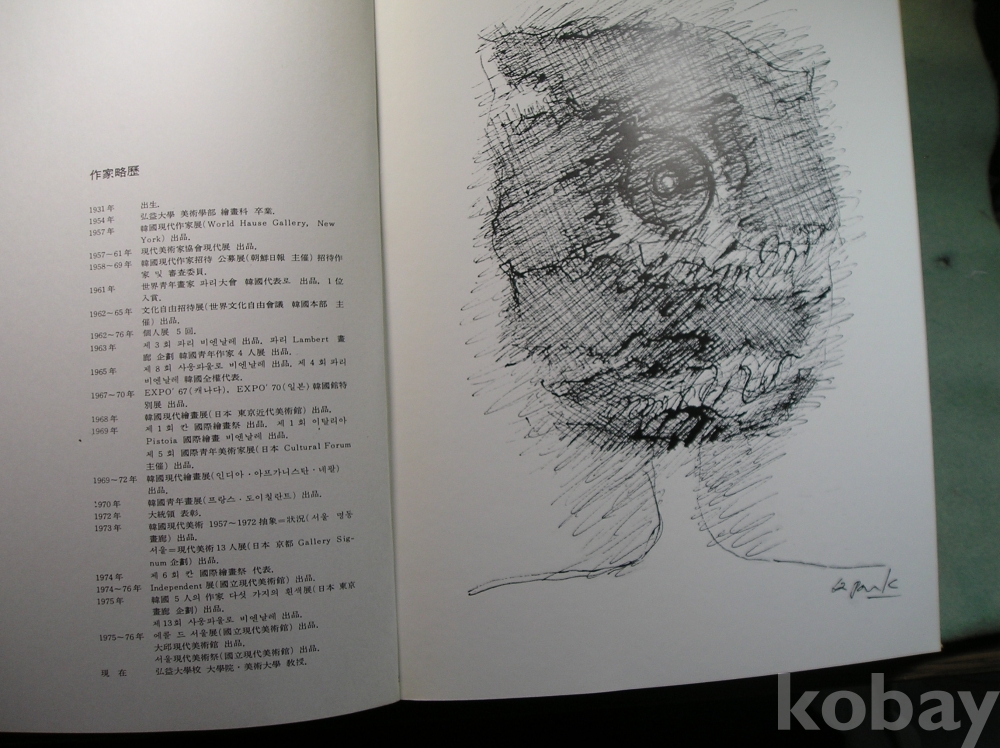 作家略歷
1931年 出生.
1954年 弘益大學 美術學部 繪畫科 卒業.
1957年 韓國現代作家展(World Hause Gallery, New
York) 出品.
1957~61年 現代美術家協會現代展 出品.
1958~69年 韓國現代作家招待 公募展(朝鮮日報 主催) 招待作
家 및 審査委員.
1961年 世界青年畫家 파리大會 韓國代表로 出品. 1位
入賞.
1962~65年 文化自由招待展(世界文化自由會議 韓國本部 主
催) 出品.
1962~76年 個人展 5回.
1963年 제3회 파리 비엔날레 出品. 파리 Lambert 畫
廊 企劃 韓國青年作家 4人展 出品.
1965年 제8회 사웅파울로 비엔날레 出品. 제4회 파리
비엔날레 韓國全權代表.
1967~70年 EXPO'67(캐나다), EXPO'70(일본) 韓國館特
別展 出品.
1968年 韓國現代繪畫展(日本 東京近代美術館) 出品.
1969年 제1회 칸 國際繪畫祭 出品. 제1회 이탈리아
Pistoia 國際繪畫 비엔날레 出品.
제5회 國際青年美術家展(日本 Cultural Forum
主催) 出品.
1969~72年 韓國現代繪畫展(인디아·아프가니스탄·네팔)
出品.
1970年 韓國青年畫展(프랑스·도이칠란트) 出品.
1972年 大統領 表彰.
1973年 韓國現代美術 1957~1972 抽象=狀況(서울 명동
畫廊) 出品.
서울=現代美術13人展(日本 京都 Gallery Sig-
num 企劃) 出品.
1974年 제6회 칸 國際繪畫祭 代表.
1974~76年 Independent展(國立現代美術館) 出品.
1975年 韓國 5人의 作家 다섯 가지의 흰색展(日本 東京
畫廊 企劃) 出品.
제13회 사웅파울로 비엔날레 出品.
1975~76年 에꼴 드 서울展(國立現代美術館) 出品.
大邱現代美術館 出品.
서울現代美術祭(國立現代美術館) 出品.
現在 弘益大學校 大學院·美術大學 敎授.
kobay